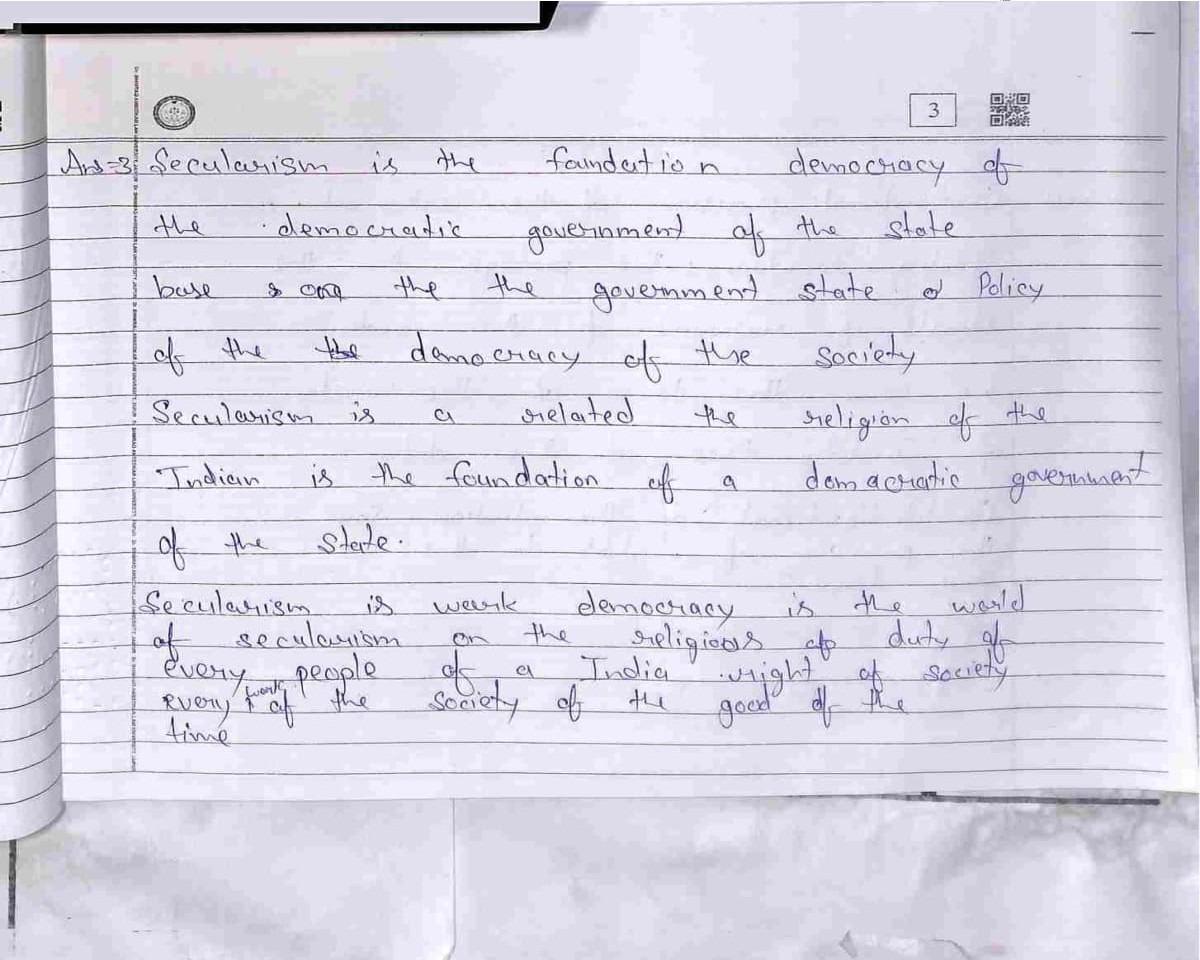 3
Ans=3 Secularism is the foundation democracy of
the democratic government of the state
base on the the government state of Policy
of the the democracy of the society
Secularism is a related the religion of the
Indian is the foundation of a demacratic government
of the State.
Secularism is wark democracy is the world
of secularism on the religious of duty of
every people of a India right of society
every work of the society of the good of the
time